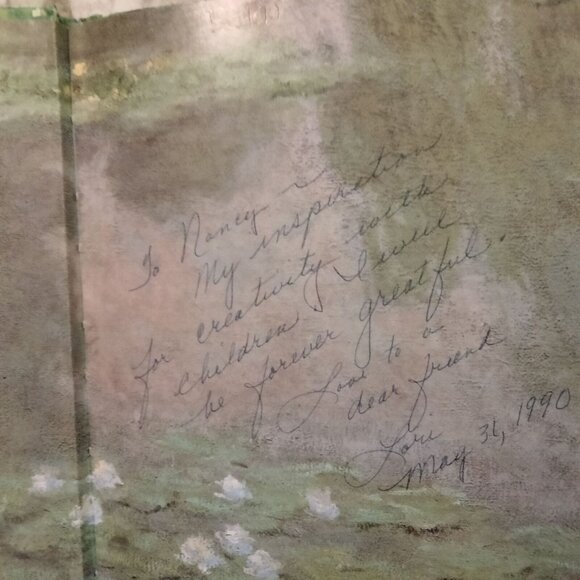 To Nancy ~
My inspiration
for creativity with
children I will
be forever greatful.
Love to a
dear friend
Lori
May 31, 1990